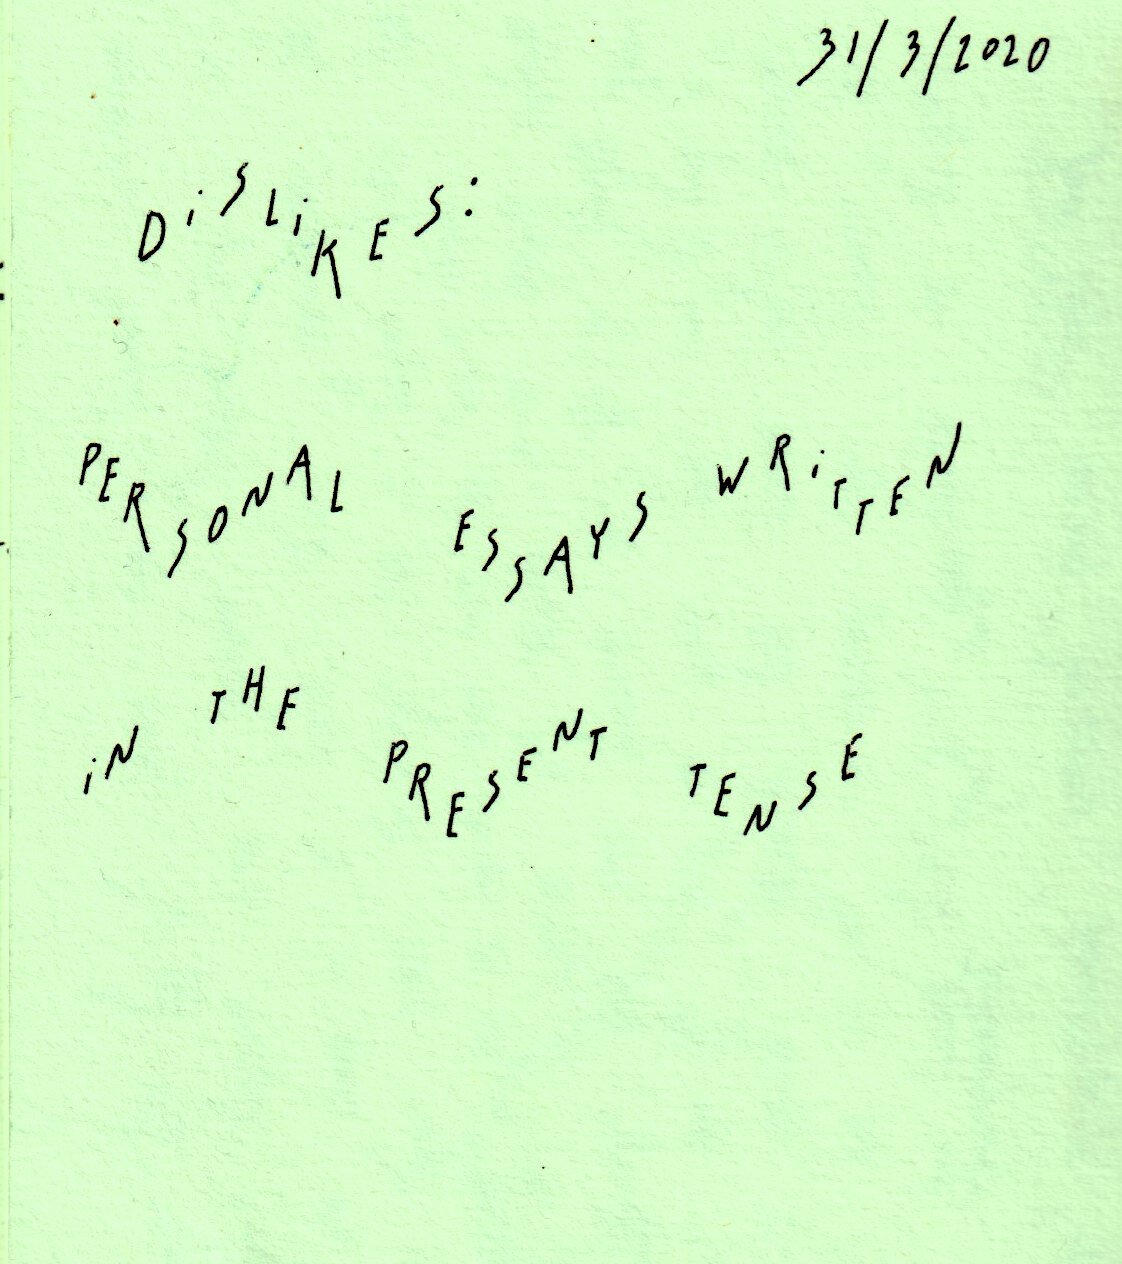 31/3/2020
DiSLiKES:
PERSONAL ESSAYS WRiTTEN
iN THE PRESENT TENSE